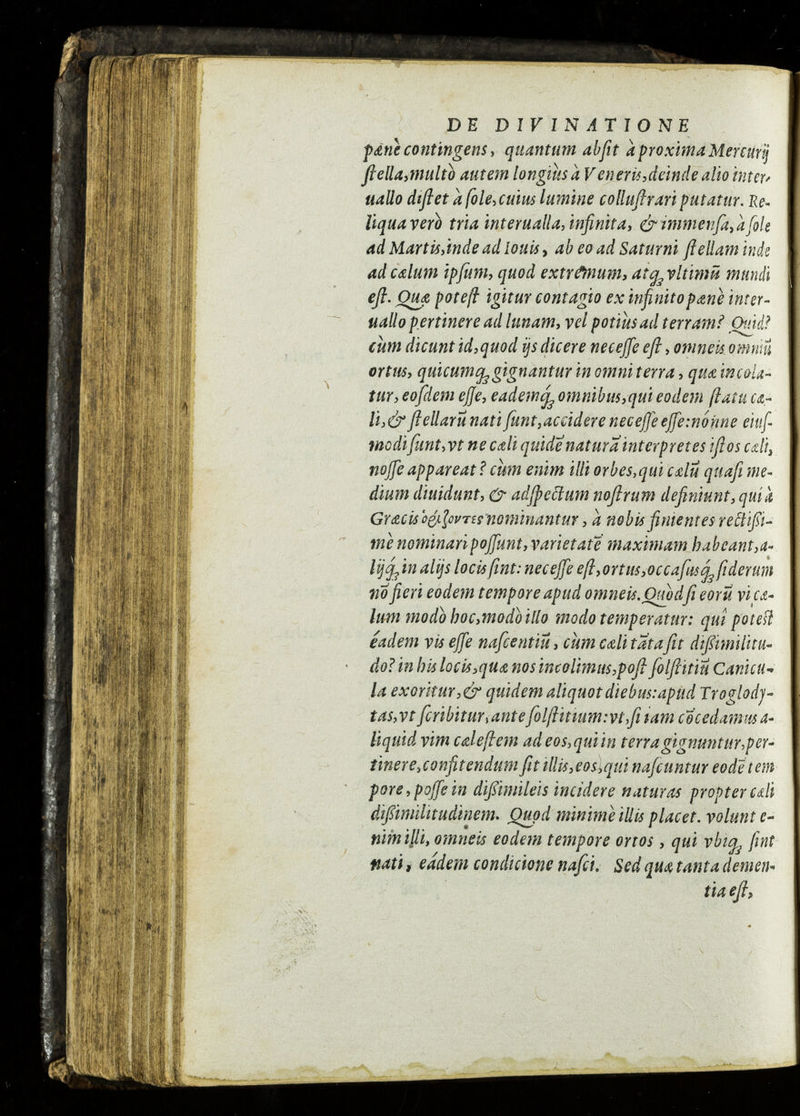 DE DIVINATIONE
pæne contingens, quantum absit à proxima Mercurij
stella, multò autem longius à Veneris, deinde alio inter-
uallo distet à sole, cuius lumine collustrari putatur. Re-
liqua verò tria interualla, infinita, & immensa, à sole
ad Martis, inde ad Iouis, ab eo ad Saturni stellam inde
ad cælum ipsum, quod extrémum, atq; vltimū mundi
est. Quæ potest igitur contagio ex infinito pæne inter-
uallo pertinere ad lunam, vel potius ad terram? Quid?
cùm dicunt id, quod ijs dicere necesse est, omneis omniū
ortus, quicumq; gignantur in omni terra, quæ incola-
tur, eosdem esse, eademq; omnibus, qui eodem statu cæ-
li, & stellarū nati sunt, accidere necesse esse: nónne eius-
modi sunt, vt ne cæli quidē naturā interpretes istos cæli,
nosse appareat? cùm enim illi orbes, qui cælū quasi me-
dium diuidunt, & adspectum nostrum definiunt, qui à
Græcis ὁρίζοντες nominantur, à nobis finientes rectissi-
mè nominari possunt, varietatē maximam habeant, a-
lijq; in alijs locis sint: necesse est, ortus, occasusq; siderum
nō fieri eodem tempore apud omneis. Quòd si eorū vi cæ-
lum modò hoc, modò illo modo temperatur: quî potest
éadem vis esse nascentiū, cùm cæli tāta sit dissimilitu-
do? in his locis, quæ nos incolimus, post solstitiū Canicu-
la exoritur, & quidem aliquot diebus: apud Troglody-
tas, vt scribitur, ante solstitium: vt, si iam cōcedamus a-
liquid vim cælestem ad eos, qui in terra gignuntur, per-
tinere, confitendum sit illis, eos, qui nascuntur eodē tem
pore, posse in dissimileis incidere naturas propter cæli
dissimilitudinem. Quod minimè illis placet. volunt e-
nim illi, omneis eodem tempore ortos, qui vbiq; sint
nati, eádem condicione nasci. Sed quæ tanta demen-
tia est,